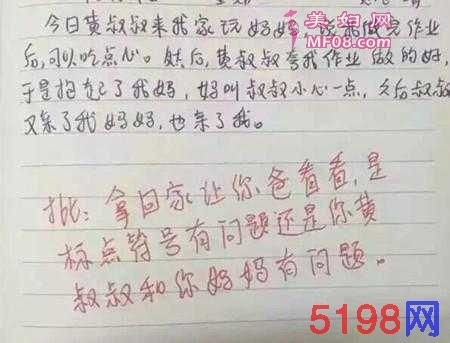 美妇网
MF08.com
今日黄叔叔来我家玩妈妈,说我做完作业
后,可以吃点心。然后,黄叔叔夸我作业做的好,
于是抱起了我妈,妈叫叔叔小心一点,之后叔叔
又亲了我妈妈,也亲了我。
批:拿回家让你爸看看,是
标点符号有问题还是你黄
叔叔和你妈妈有问题。
5198网